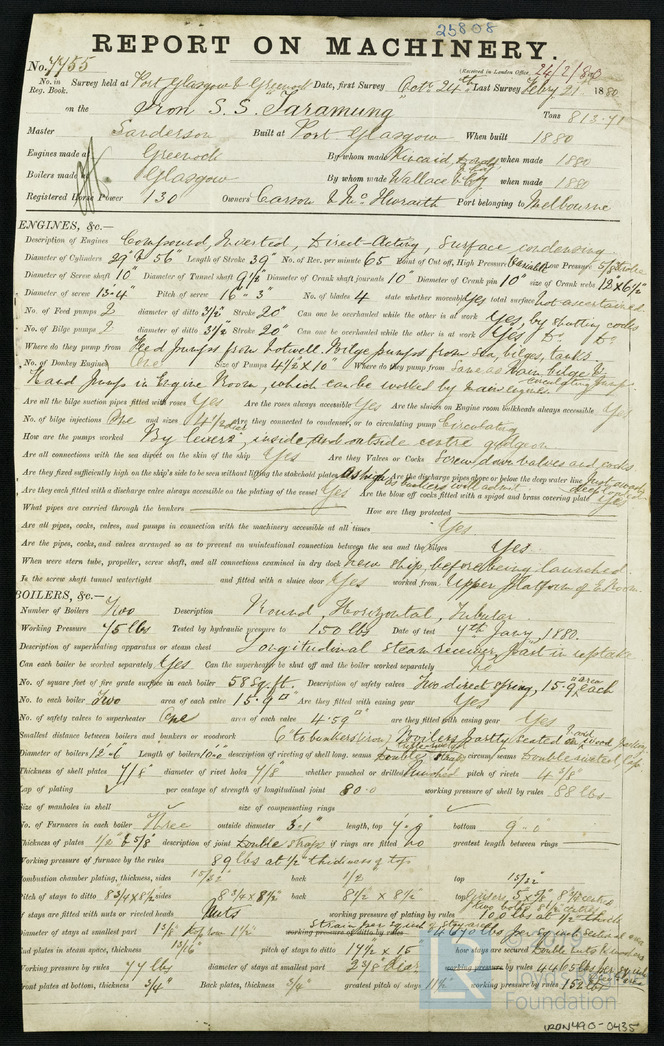 25808
REPORT ON MACHINERY.
No. 7755
(Received in London Office, 24/2/80
No. in Survey held at Port Glasgow & Greenock Date, first Survey Octr 24th Last Survey Feby 21 1880
Reg. Book.
on the Iron S.S. "Taramung" Tons 813.71
Master Sanderson Built at Port Glasgow When built 1880
Engines made at Greenock By whom made Kincaid when made 1880
Boilers made at Glasgow By whom made Wallace & Co when made 1880
Registered Horse Power 130 Owners Port belonging to Melbourne
ENGINES, &c.—
Description of Engines Compound, Inverted, Direct-Acting Surface condensing
Diameter of Cylinders 29" & 56" Length of Stroke 39" No. of Rev. per minute 65 Point of Cut off, High Pressure Variable Low Pressure 5/8 stroke
Diameter of Screw shaft 10" Diameter of Tunnel shaft 9 1/2 Diameter of Crank shaft journals 10" Diameter of Crank pin 10" size of Crank webs 12 x 6 1/2"
Diameter of screw 13-4" Pitch of screw 16"-3" No. of blades 4 state whether moveable Yes total surface not ascertained
No. of Feed pumps 2 diameter of ditto 3 1/2 Stroke 20" Can one be overhauled while the other is at work Yes, by shutting cocks
No. of Bilge pumps 2 diameter of ditto 3 1/2 Stroke 20" Can one be overhauled while the other is at work Yes Do Do
Where do they pump from Feed pumps from hotwell. Bilge pumps from sea, bilges, tanks
No. of Donkey Engines One Size of Pumps 4 1/2 x 10" Where do they pump from Same as Main bilge &
Hand Pump in Engine Room, which can be worked by main engines. circulating pump
Are all the bilge suction pipes fitted with roses Yes Are the roses always accessible Yes Are the sluices on Engine room bulkheads always accessible Yes
No. of bilge injections One and sizes 4 1/2 diar Are they connected to condenser, or to circulating pump Circulating
How are the pumps worked By levers, inside and outside centre gudgeon
Are all connections with the sea direct on the skin of the ship Yes Are they Valves or Cocks Screw down valves and cocks
Are they fixed sufficiently high on the ship's side to be seen without lifting the stokehold plates As high as bunkers will admit Are the discharge pipes above or below the deep water line
Are they each fitted with a discharge valve always accessible on the plating of the vessel Yes Are the blow off cocks fitted with a spigot and brass covering plate Yes
What pipes are carried through the bunkers How are they protected
Are all pipes, cocks, valves, and pumps in connection with the machinery accessible at all times Yes
Are the pipes, cocks, and valves arranged so as to prevent an unintentional connection between the sea and the bilges Yes
When were stern tube, propeller, screw shaft, and all connections examined in dry dock New ship, before being launched
Is the screw shaft tunnel watertight and fitted with a sluice door Yes worked from Upper Platform of E. Room.
BOILERS, &c.—
Number of Boilers Two Description Round, Horizontal, Tubular
Working Pressure 75 lbs Tested by hydraulic pressure to 150 lbs Date of test 7th Jany 1880.
Description of superheating apparatus or steam chest Longitudinal steam receiver, part in uptake
Can each boiler be worked separately Yes Can the superheater be shut off and the boiler worked separately No
No. of square feet of fire grate surface in each boiler 58 Sq. ft. Description of safety valves Two direct spring, 15.9 □" area each
No. to each boiler Two area of each valve 15.9 □" Are they fitted with easing gear Yes
No. of safety valves to superheater One area of each valve 4.59 □" are they fitted with easing gear Yes
Smallest distance between boilers and bunkers or woodwork 6" to bunkers (iron) Boilers partly seated on wood
Diameter of boilers 12'-6" Length of boilers 10'-0" description of riveting of shell long. seams Double straps circum. seams Double riveted lap
Thickness of shell plates 7/8" diameter of rivet holes 7/8" whether punched or drilled Punched pitch of rivets 4 3/8"
Lap of plating ✓ per centage of strength of longitudinal joint 80.0 working pressure of shell by rules 88 lbs
Size of manholes in shell ✓ size of compensating rings ✓
No. of Furnaces in each boiler Three outside diameter 3'-1" length, top 7'-0 bottom 9'-0"
Thickness of plates 1/2" & 5/8" description of joint Double straps if rings are fitted No greatest length between rings
Working pressure of furnace by the rules 89 lbs at 1/2" thickness of top
Combustion chamber plating, thickness, sides 15/32" back 1/2 top 15/32"
Pitch of stays to ditto 8 3/4 x 8 1/2 sides 8 3/4 x 8 1/2" back 8 1/2 x 8 1/2" top
If stays are fitted with nuts or riveted heads Nuts working pressure of plating by rules 100 lbs at 1/2 thick
Diameter of stays at smallest part 1 3/8" working pressure of ditto by rules Strain per square of stay area 4640 lbs per square inch
End plates in steam space, thickness 13/16" pitch of stays to ditto 17 1/2 x 15 how stays are secured Double nuts & washers
Working pressure by rules 77 lbs diameter of stays at smallest part 2 3/8 diar working pressure by rules 4465 lbs per square
Front plates at bottom, thickness 3/4" Back plates, thickness 3/4" greatest pitch of stays 11 1/2" working pressure by rules 152 lbs
Foundation
IRON490-0435